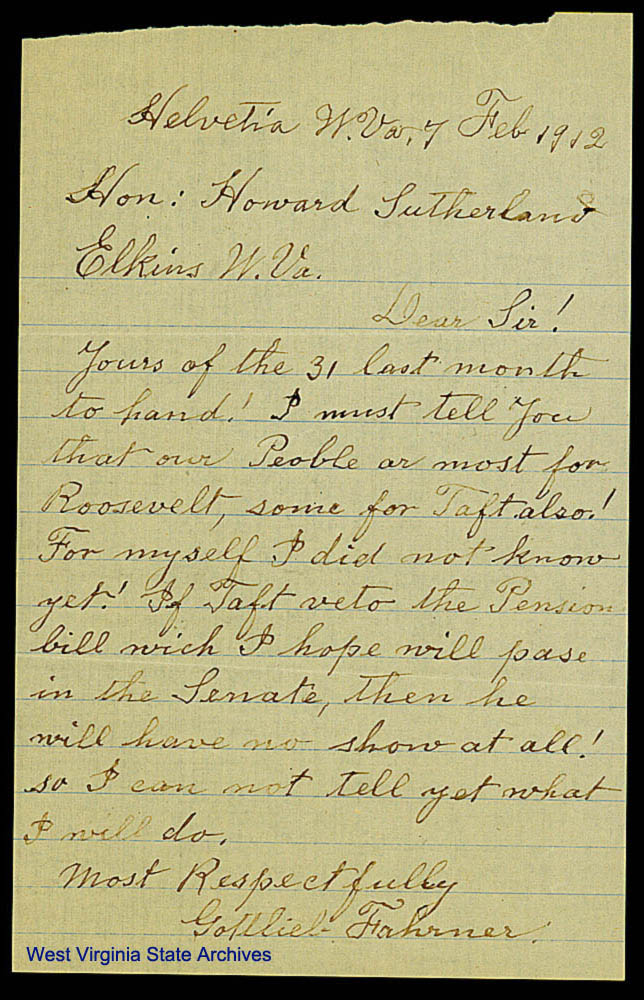 Helvetia W.Va, 7 Feb 1912
Hon: Howard Sutherland
Elkins W.Va.
Dear Sir!
Yours of the 31 last month
to hand! I must tell You
that our Peoble ar most for
Roosevelt, some for Taft also!
For myself I did not know
yet! If Taft veto the Pension
bill wich I hope will pase
in the Senate, then he
will have no show at all!
so I can not tell yet what
I will do.
Most Respectfully
Gottlieb Fahrner.
West Virginia State Archives